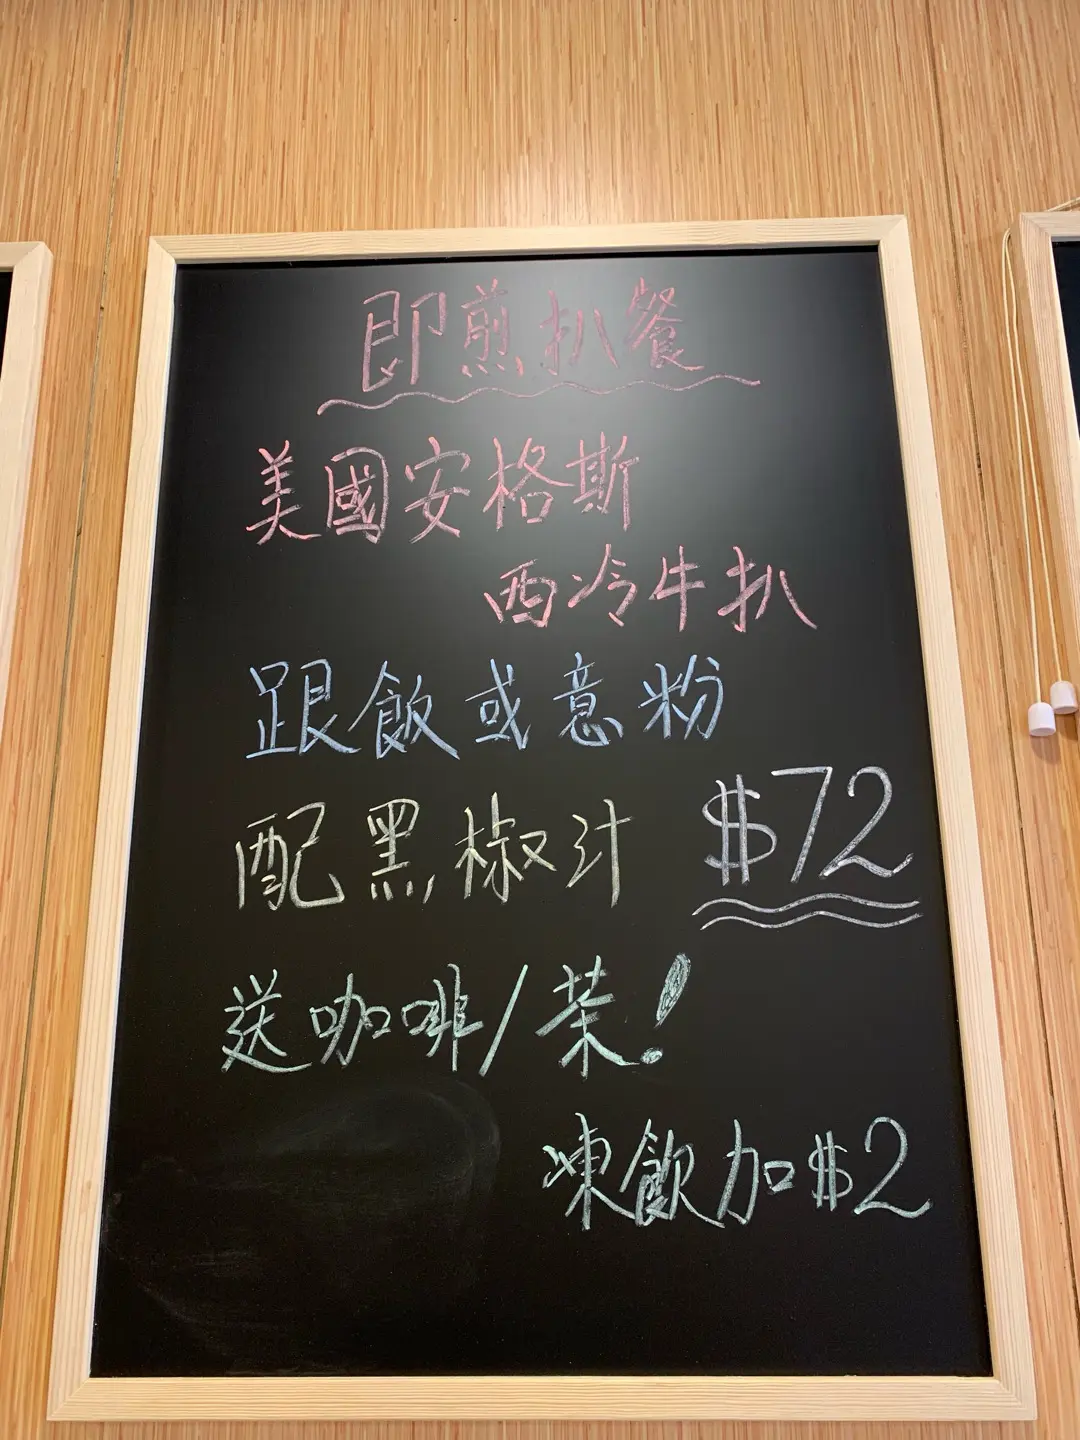 即煎扒餐
美國安格斯
西冷牛扒
跟飯或意粉
配黑椒汁 $72
送咖啡/茶!
凍飲加$2